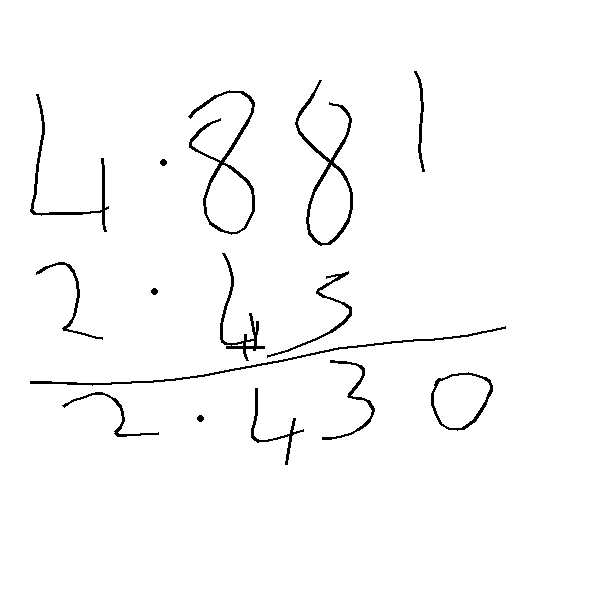 4.881
2.45
2.430